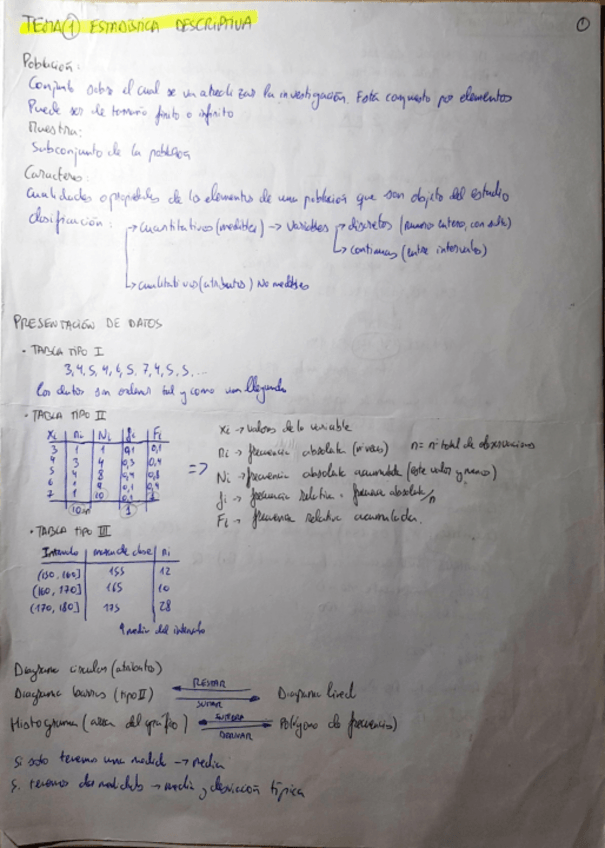 TEMA ① ESTADÍSTICA DESCRIPTIVA
①
Población:
Conjunto sobre el cual se va a realizar la investigación. Está compuesto por elementos
Puede ser de tamaño finito o infinito
Muestra:
Subconjunto de la población
Caracteres:
Cualidades o propiedades de los elementos de una población que son objeto del estudio
clasificación: → cuantitativos (medibles) → variables → discretas (numero entero, con
→ continuas (entre intervalos)
→ cualitativos (atributos) No medibles
PRESENTACIÓN DE DATOS
· TABLA TIPO I
3, 4, 5, 4, 6, 5, 7, 4, 5, 5, ...
los datos sin ordenar tal y como van llegando
· TABLA TIPO II
xi | ni | Ni | fi | Fi
3 | 1 | 1 | 0,1 | 0,1
4 | 3 | 4 | 0,3 | 0,4
5 | 4 | 8 | 0,4 | 0,8
6 | 1 | 9 | 0,1 | 0,9
7 | 1 | 10 | 0,1
10=n | 1
=>
xi → valores de la variable
ni → frecuencia absoluta (nº veces) n = nº total de observaciones
Ni → frecuencia absoluta acumulada (este valor y menos)
fi → frecuencia relativa = frecuencia absoluta/n
Fi → frecuencia relativa acumulada.
· TABLA TIPO III
Intervalo | marca de clase | ni
(150, 160] | 155 | 12
(160, 170] | 165 | 10
(170, 180] | 175 | 28
↑ medio del intervalo
Diagrama círculos (atributos)
Diagrama barras (tipo II) RESTAR SUMAR Diagrama lineal
Histograma (area del gráfico) INTEGRA DERIVAR Polígono de frecuencias)
Si solo tenemos una medida → media
Si tenemos dos medidas → media y desviación típica